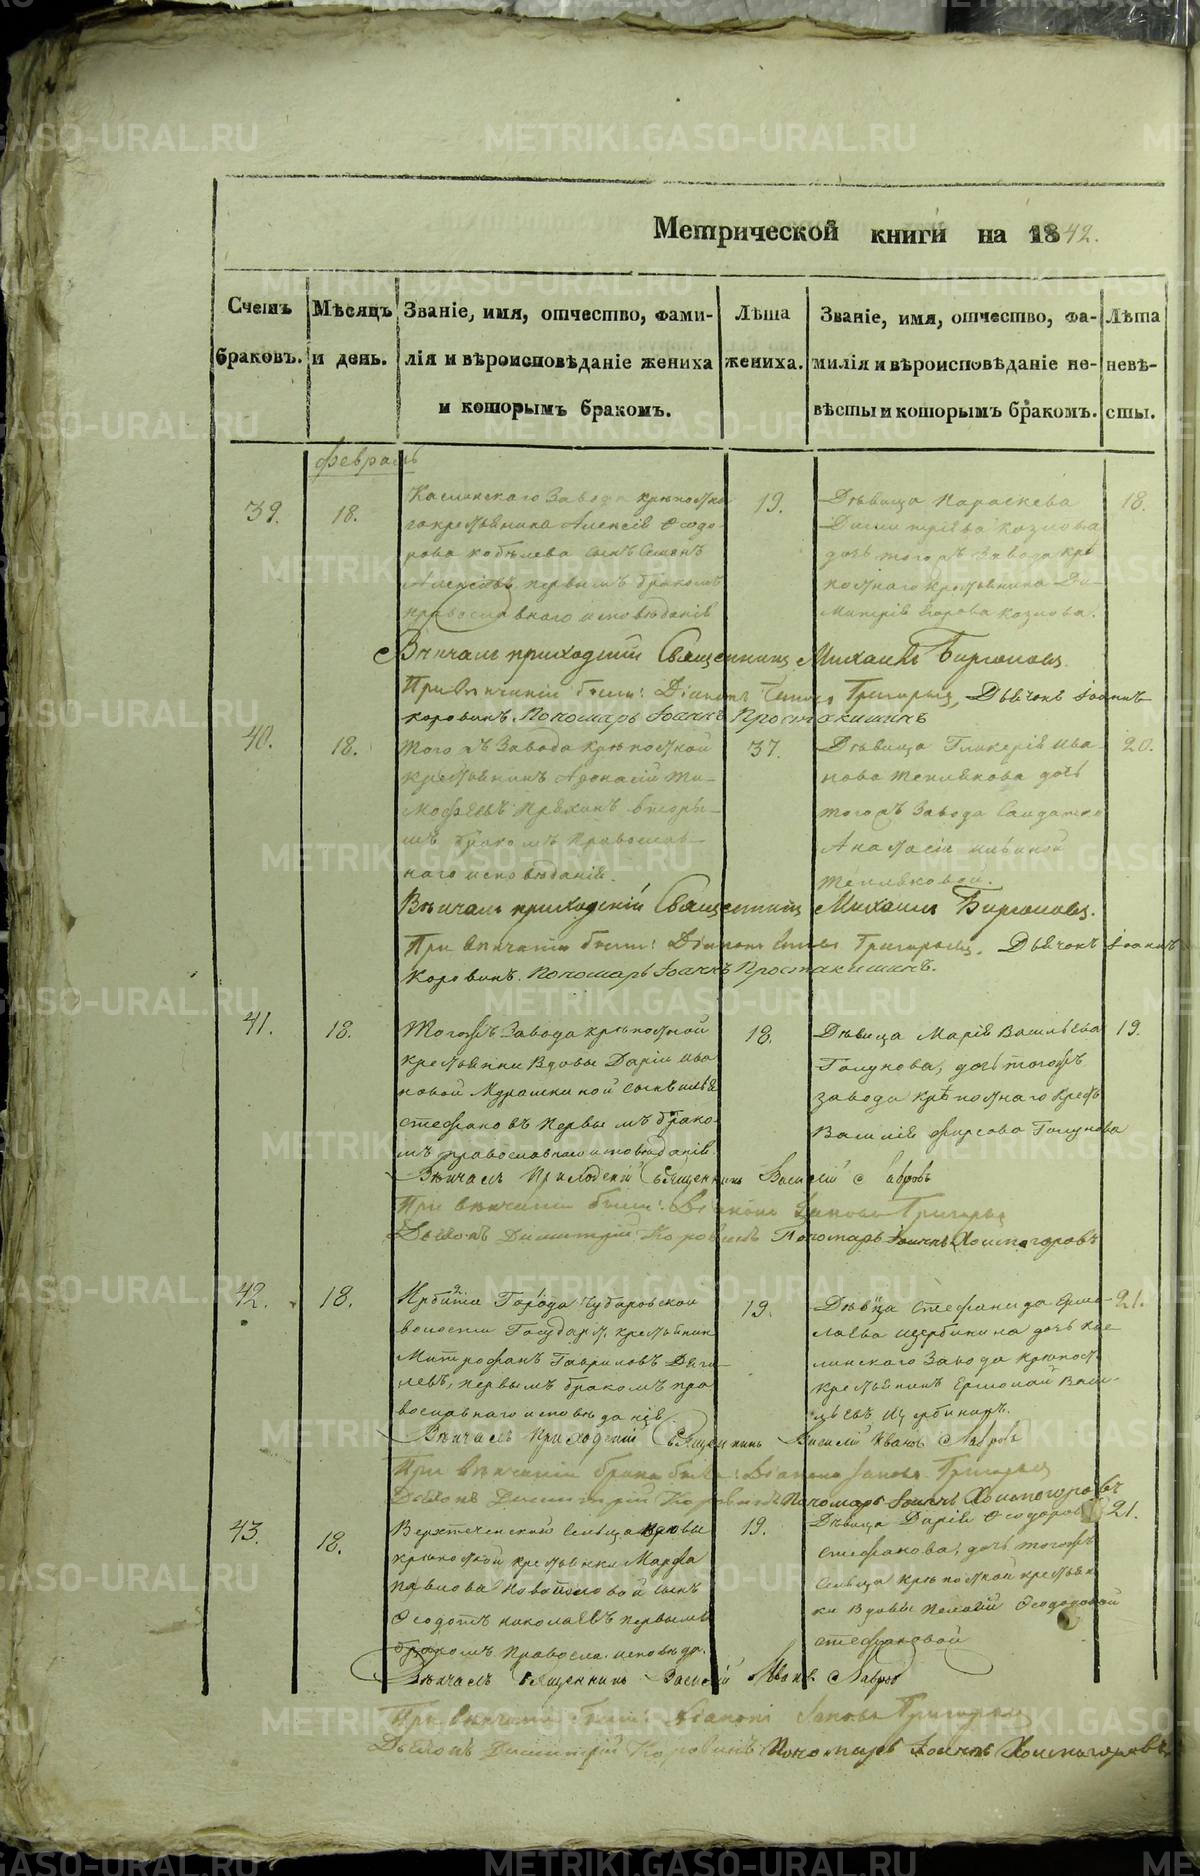 METRIKI.GASO-URAL.RU
Метрической книги на 1842.
Счетъ браковъ.
Мѣсяцъ и день.
Званіе, имя, отчество, фами-
лія и вѣроисповѣданіе жениха
и которымъ бракомъ.
Лѣта жениха.
Званіе, имя, отчество, фа-
милія и вѣроисповѣданіе не-
вѣсты и которымъ бракомъ.
Лѣта невѣ-
сты.
февраль
39.
18.
Каслинскаго Завода крѣпостна
го крестьянина Алексія Ѳеодо-
рова Кобѣлева сынъ Семенъ
Алексѣевъ первымъ бракомъ
православнаго исповѣданія
19.
Дѣвица Параскева
Димитріева Козлова
дочь тогожъ Завода крѣ
постнаго крестьянина Ди-
митрія Егорова Козлова.
18.
Вѣнчалъ приходскій Священникъ Михаилъ Бирюковъ.
При вѣнчаніи были: Діаконъ Григорьевъ, Дьячокъ Іоаннъ
Коровинъ. Пономарь Іоаннъ Простакишинъ
40.
18.
Того жъ Завода крѣпостной
крестьянинъ Аѳонасій Ти-
мофѣевъ Пряхинъ вторы-
мъ бракомъ Православ-
наго исповѣданія.
37.
Дѣвица Гликерія Ива-
нова Теплякова дочь
тогожъ Завода Солдатки
Анастасіи
Тепляковой.
20.
Вѣнчалъ приходскій Священникъ Михаилъ Бирюковъ.
При вѣнчаніи были: Діаконъ Григорьевъ. Дьячокъ Іоаннъ
Коровинъ. Пономарь Іоаннъ Простакишинъ.
41.
18.
Тогожъ Завода крѣпостной
крестьянки Вдовы Даріи Ива
новой Мурашкиной сынъ Илья
Стефановъ первымъ брако-
мъ православнаго исповѣданія
18.
Дѣвица Марія Васильева
Голунова, дочь тогожъ
завода крѣпостнаго Крест
Василія Фирсова Голунова
19.
Вѣнчалъ Приходскій Священникъ Василій Лавровъ
При вѣнчаніи были: Діаконъ Іаковъ Григорьевъ
Дьячокъ Димитрій Коровинъ Пономарь Іоаннъ Холмогоровъ
42.
18.
Ирбитск Города Чубаровской
волости Государст. крестьянинъ
Митрофанъ Гавриловъ Дяги-
левъ, первымъ бракомъ пра
вославнаго исповѣданія
19.
Дѣвица Стефанида Ермо-
лаева Щербинина дочь Кас-
линскаго Завода крѣпост.
крестьянинъ Ермолай Васи-
льевъ Щербининъ.
21.
Вѣнчалъ Приходскій Священникъ Василій Ивановъ Лавровъ
При вѣнчаніи брака были: Діаконъ Іаковъ Григорьевъ
Дьячокъ Димитрій Коровинъ Пономарь Іоаннъ Холмогоровъ
43.
18.
Верхтеченский Сельца вдовы
крѣпостной крестьянки Марфа
Павлова сынъ
Ѳеодотъ Николаевъ первымъ
бракомъ Правосла. исповѣда.
19.
Дѣвица Дарія Ѳеодоров
Стефанова, дочь тогожъ
Сельца крѣпостной крестьян
ки Вдовы Пелагіи Ѳеодоровой
Стефановой
21.
Вѣнчалъ Священникъ Василій Иванов. Лавровъ
При вѣнчаніи были Діаконъ Іаковъ Григорьевъ
Дьячокъ Димитрій Коровинъ Пономарь Іоаннъ Холмогоровъ